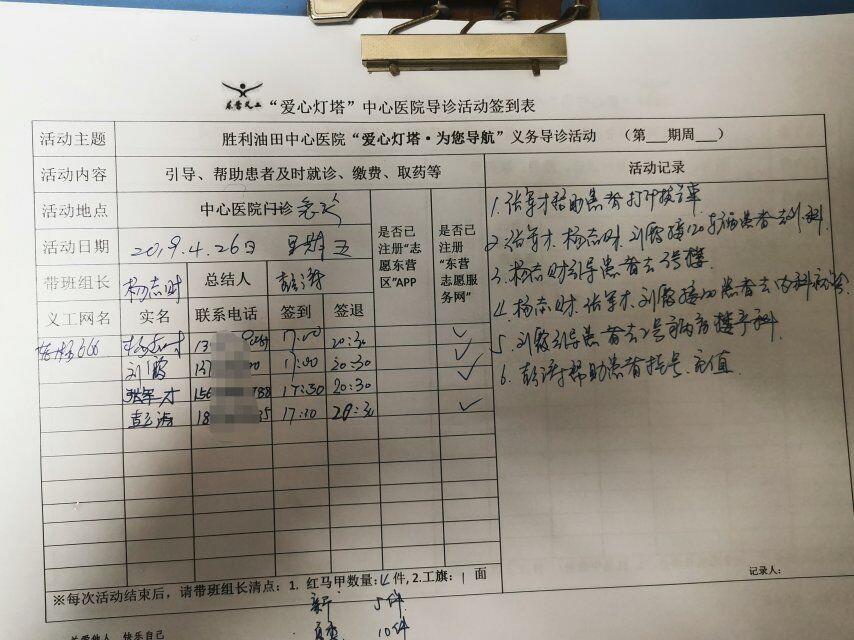 “爱心灯塔”中心医院导诊活动签到表
活动主题 胜利油田中心医院“爱心灯塔·为您导航”义务导诊活动 （第___期周___）
活动内容 引导、帮助患者及时就诊、缴费、取药等 活动记录
活动地点 中心医院门诊 急诊 是否已注册“志愿东营区”APP 是否已注册“东营志愿服务网”
活动日期 2019.4.26日 星期五
带班组长 杨志财 总结人 彭涛
义工网名 实名 联系电话 签到 签退
666 杨志财 13 17:00 20:30 ✓
刘霞 137 00 17:00 20:30 ✓
张军才 156 788 17:30 20:30 ✓
彭涛 18 35 17:30 20:30 ✓
1.张军才帮助患者打印核算单
2.张军才.杨志财.刘霞接120车病患者去外科.
3.杨志财引导患者去3号楼.
4.杨志财.张军才.刘霞接120患者去内科
5.刘霞引导患者去2号 楼产科.
6.彭涛帮助患者挂号.充值.
记录人：
※每次活动结束后，请带班组长清点：1. 红马甲数量:4件, 2.工旗: 1 面
新 5件
10件
关爱他人 快乐自己